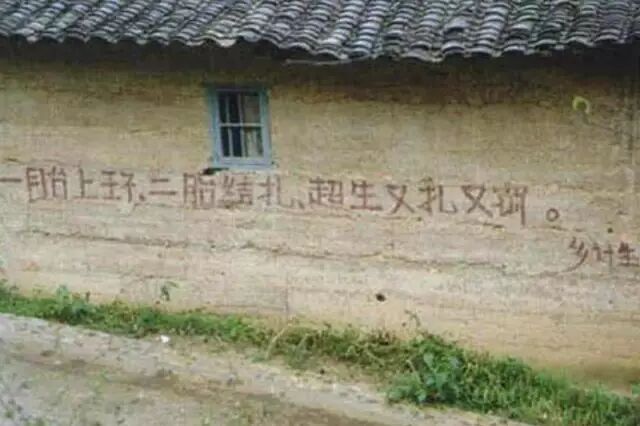 一胎上环、二胎结扎、超生又扎又罚。
乡计生